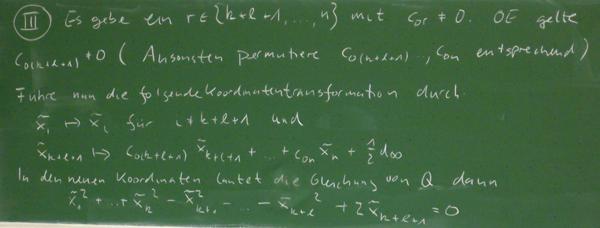 III Es gebe ein r ∈ {k+l+1, ..., n} mit c₀ᵣ ≠ 0. OE gelte
c₀₍ₖ₊ₗ₊₁₎ ≠ 0 (Ansonsten permutiere c₀₍ₖ₊ₗ₊₁₎ .., c₀ₙ entsprechend)
Führe nun die folgende Koordinatentransformation durch.
x̃ᵢ ↦ x̃ᵢ für i ≠ k+l+1 und
x̃ₖ₊ₗ₊₁ ↦ c₀₍ₖ₊ₗ₊₁₎ x̃ₖ₊ₗ₊₁ + ... + c₀ₙ x̃ₙ + ½ d₀₀
In den neuen Koordinaten lautet die Gleichung von Q dann
x̃₁² + ... + x̃ₖ² - x̃ₖ₊₁² - ... - x̃ₖ₊ₗ² + 2x̃ₖ₊ₗ₊₁ = 0